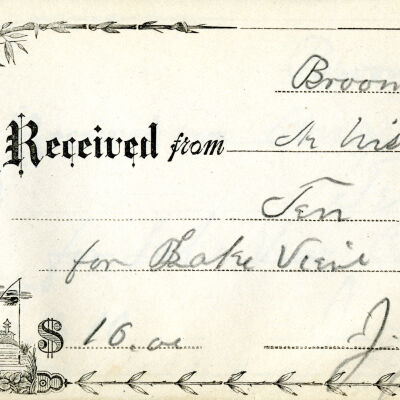 Broom
Received from
Ten
for Lake View
$ 10.00
J.